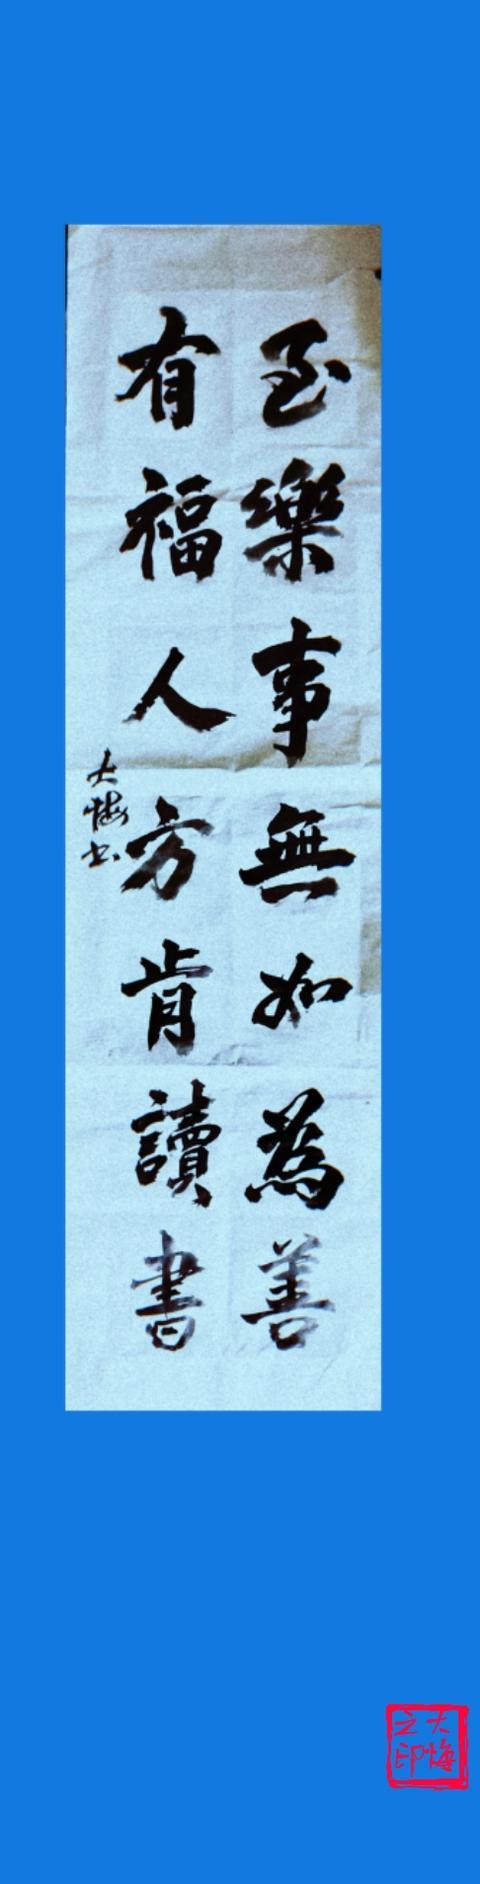 至樂事無如為善
有福人方肯讀書
大悔书
大悔之印